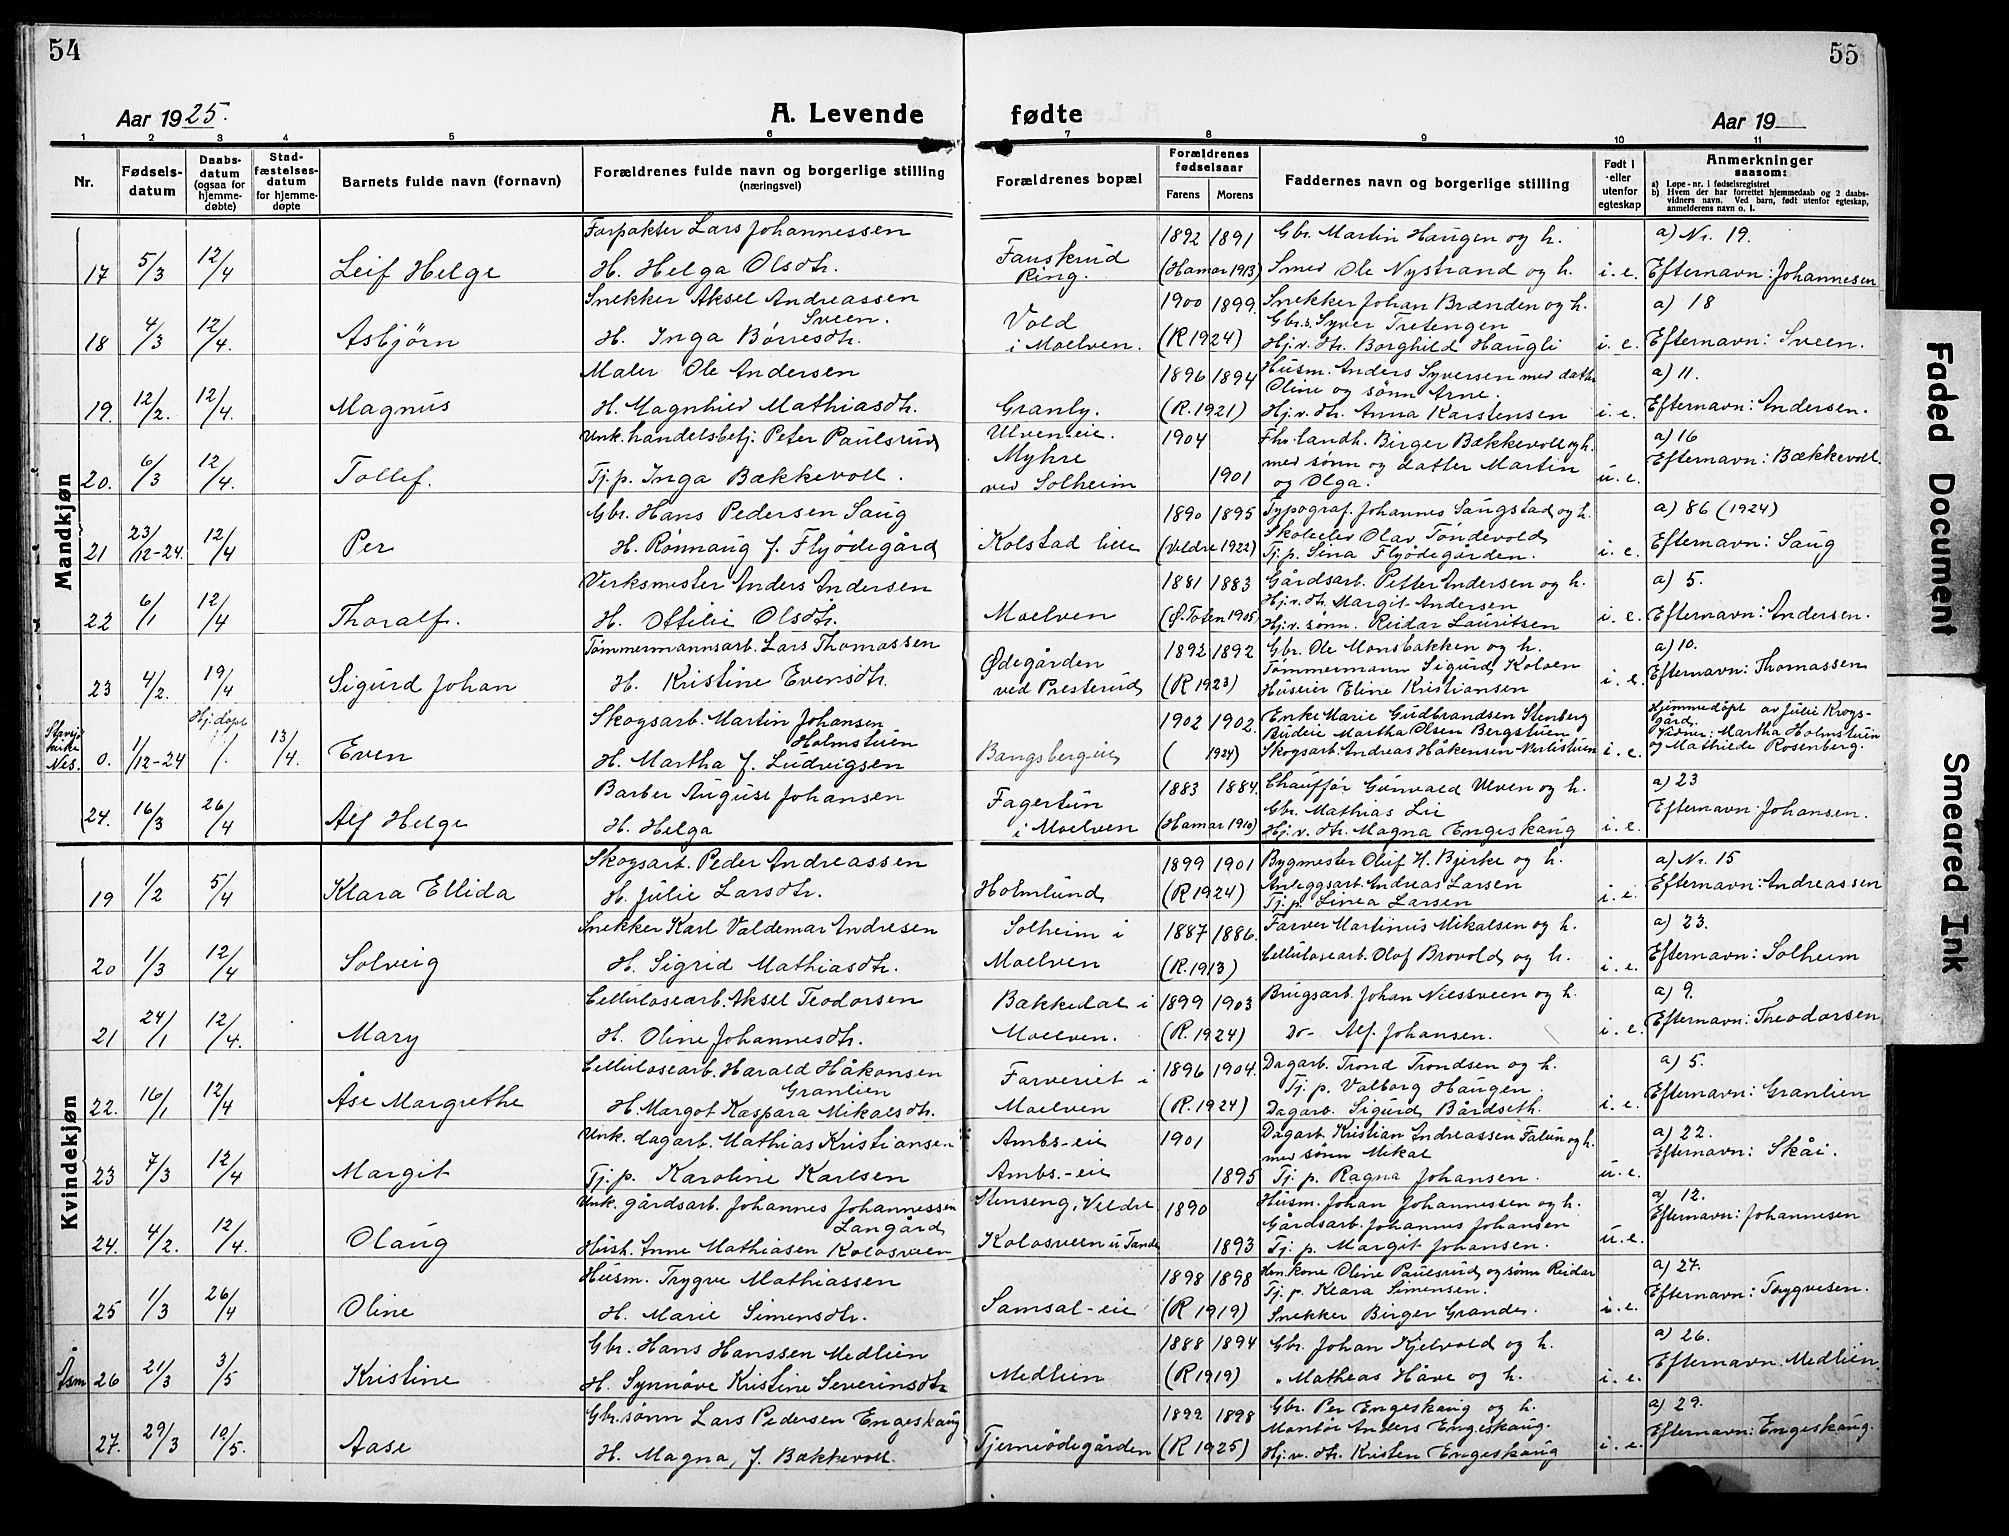 54
55
Aar 1925.
A. Levende
fødte
Aar 19
1 2 3 4 5 6 7 8 9 10 11
Nr.
Fødsels-
datum
Daabs-
datum
(ogsaa for
hjemme-
døbte)
Stad-
fæstelses-
datum
for hjemme-
døpte
Barnets fulde navn (fornavn)
Forældrenes fulde navn og borgerlige stilling
(næringsvei)
Forældrenes bopæl
Forældrenes
fødselsaar
Farens Morens
Faddernes navn og borgerlige stilling
Født i
eller
utenfor
egteskap
Anmerkninger
saasom:
a) Løpe-nr. i fødselsregistret
b) Hvem der har forrettet hjemmedaab og 2 daabs-
vidners navn. Ved barn, født utenfor egteskap,
anmelderens navn o. l.
Mandkjøn
17 5/3 12/4 Leif Helge
Forpakter Lars Johannessen
H. Helga Olsdtr.
Fauskrud
Ring.
1892 1891
(Hamar 1913)
Gbr. Martin Haugen og h.
Smed Ole Nystrand og h.
i. e.
a) Nr. 19.
Efternavn: Johannesen
18 4/3 12/4. Asbjörn
Snekker Aksel Andreassen
Sveen.
H. Inga Børresdtr.
Vold
i Moelven.
1900 1899.
(R 1924)
Snekker Johan Brænden og h.
Gbr.s. Syver Tretengen
Hj.v. dtr. Borghild Haugli
i. e.
a) 18
Efternavn: Sveen.
19. 12/2. 12/4. Magnus
Maler Ole Andersen
H. Magnhild Mathiasdtr.
Granly.
1896 1894
(R. 1921)
Husm. Anders Syversen med datter
Oline og sønn Arne.
Hj.v. dtr. Anna Karstensen
i. e.
a) 11.
Efternavn: Andersen.
20. 6/3 12/4. Tollef.
Unk. handelsbetj. Peter Paulsrud
Tj. p. Inga Bækkevoll.
Ulven-eie.
Myhre
ved Solheim
1904
1901
Fhv. landh. Birger Bækkevoll og h.
med sønn og datter Martin
og Olga.
u. e.
a) 16
Efternavn: Bækkevoll.
21 23/12-24 12/4 Per
Gbr. Hans Pedersen Saug
H. Rønnaug f. Flyødegård
Kolstad lille
1890 1895
(Veldre 1922)
Typograf. Johannes Saugstad og h.
Skoleelev Olav Tøndevold
Tj. p. Sina Flyødegården.
i. e.
a) 86 (1924)
Efternavn: Saug
22 6/1 12/4 Thoralf.
Verksmester Anders Andersen
H. Ottilie Olsdtr.
Moelven
1881 1883
(Ø. Toten 1905)
Gårdsarb. Petter Andersen og h.
Hj.v. dtr. Margit Andersen
Hj.v. sønn. Reidar Lauritsen
i. e.
a) 5.
Efternavn: Andersen.
23 4/2. 19/4 Sigurd Johan
Tømmermannsarb. Lars Thomassen
H. Kristine Evensdtr.
Ødegården
ved Presterud
1892 1892
(R 1923)
Gbr. Ole Monsbakken og h.
Tømmermann Sigurd Kolven
Huseier Eline Kristiansen
i. e.
a) 10.
Efternavn: Thomassen
kirke
Nes. 0. 1/12-24 Hj. døpt 13/4. Even
Skogsarb. Martin Johansen
Holmstuen
H. Martha f. Ludvigsen
Bangsberg-eie
1902 1902.
( 1924)
Enke Marie Gudbrandsen Stenberg
Budeie Martha Olsen Bergstuen
Skogsarb. Andreas Håkensen Nerlistuen
i. e.
Hjemmedøpt av Julie Krogs-
gård.
Vidner: Martha Holmstuen
og Mathilde Rosenberg.
24. 16/3 26/4 Alf Helge
Barber August Johansen
H. Helga
Fagertun
i Moelven
1883 1884.
(Hamar 1910)
Chauffør Gunvald Ulven og h.
Gbr. Mathias Lie
Hj. v. dtr. Magna Engeskaug
i. e.
a) 23
Efternavn: Johansen.
Kvindekjøn
19 1/2 5/4 Klara Ellida
Skogsarb. Peder Andreassen
H. Julie Larsdtr.
Holmlund
1899 1901
(R 1924)
Bygmester Oluf H. Bjerke og h.
Anleggsarb. Andreas Larsen
Tj. p. Linea Larsen
i. e.
a) Nr. 15
Efternavn: Andreassen
20 1/3 12/4 Solveig
Snekker Karl Valdemar Andresen
H. Sigrid Mathiasdtr.
Solheim i
Moelven
1887 1886.
(R. 1913)
Farver Martinus Mikalsen og h.
Cellulosearb. Olof Brovold og h.
i. e.
a) 23.
Efternavn: Solheim
21 24/1 12/4. Mary
Cellulosearb. Aksel Teodorsen
H. Oline Johannesdtr.
Bakkedal i
Moelven.
1899 1903
(R. 1924)
Brugsarb. Johan Niessveen og h.
Do- Alf. Johansen.
i. e.
a) 9.
Efternavn: Theodorsen
22. 16/1 12/4 Åse Margrethe
Cellulosearb. Harald Håkonsen
Granlien
H. Margot Kaspara Mikalsdtr.
Farveriet i
Moelven
1896 1904.
(R. 1924)
Dagarb. Trond Trondsen og h.
Tj. p. Valborg Haugen.
Dagarb. Sigurd Bårdseth.
i. e.
a) 5.
Efternavn: Granlien
23 7/3 12/4 Margit
Unk. dagarb. Mathias Kristiansen
Tj. p. Karoline Karlsen
Ambs-eie
Ambs.-eie
1901
1895
Dagarb. Kristian Andreassen Falun og h.
med sønn Mikal
Tj. p. Ragna Johansen.
u. e.
a) 22.
Efternavn: Skåi.
24. 4/2. 12/4. Olaug
Unk. gårdsarb. Johannes Johannessen
Langård
Hush. Anne Mathiasen Kolosveen
Stenseng, Veldre
Kolosveen u. Tande
1890
1893
Husm. Johan Johannessen og h.
Gårdsarb. Johannes Johansen
Tj. p. Margit Johansen.
u. e.
a) 12.
Efternavn: Johannesen
25 1/3 26/4 Oline
Husm. Trygve Mathiassen
H. Marie Simensdtr.
Samsal-eie
1898 1898
(R 1919)
Hm. kone Oline Paulsrud og sønn Reidar
Tj. p. Klara Simensen.
Snekker Birger Grande.
i. e.
a) 27.
Efternavn: Trygvesen.
Åsm 26 21/3 3/5 Kristine
Gbr. Hans Hanssen Medlien
H. Synnöve Kristine Severinsdtr
Medlien
1888 1894
(R 1919)
Gbr. Johan Kjelvold og h.
" Matheas Håve og h.
i. e.
a) 26.
Efternavn: Medlien.
27. 29/3 10/5. Aase
Gbr.sønn Lars Pedersen Engeskaug
H. Magna, f. Bækkevoll
Tjerneødegården
1892 1898
(R 1925)
Gbr. Per Engeskaug og h.
Montør Anders Engeskaug.
Hj. v. dtr. Kristen Engeskaug
i. e.
a) 29.
Efternavn: Engeskaug.
Faded Document
Smeared Ink